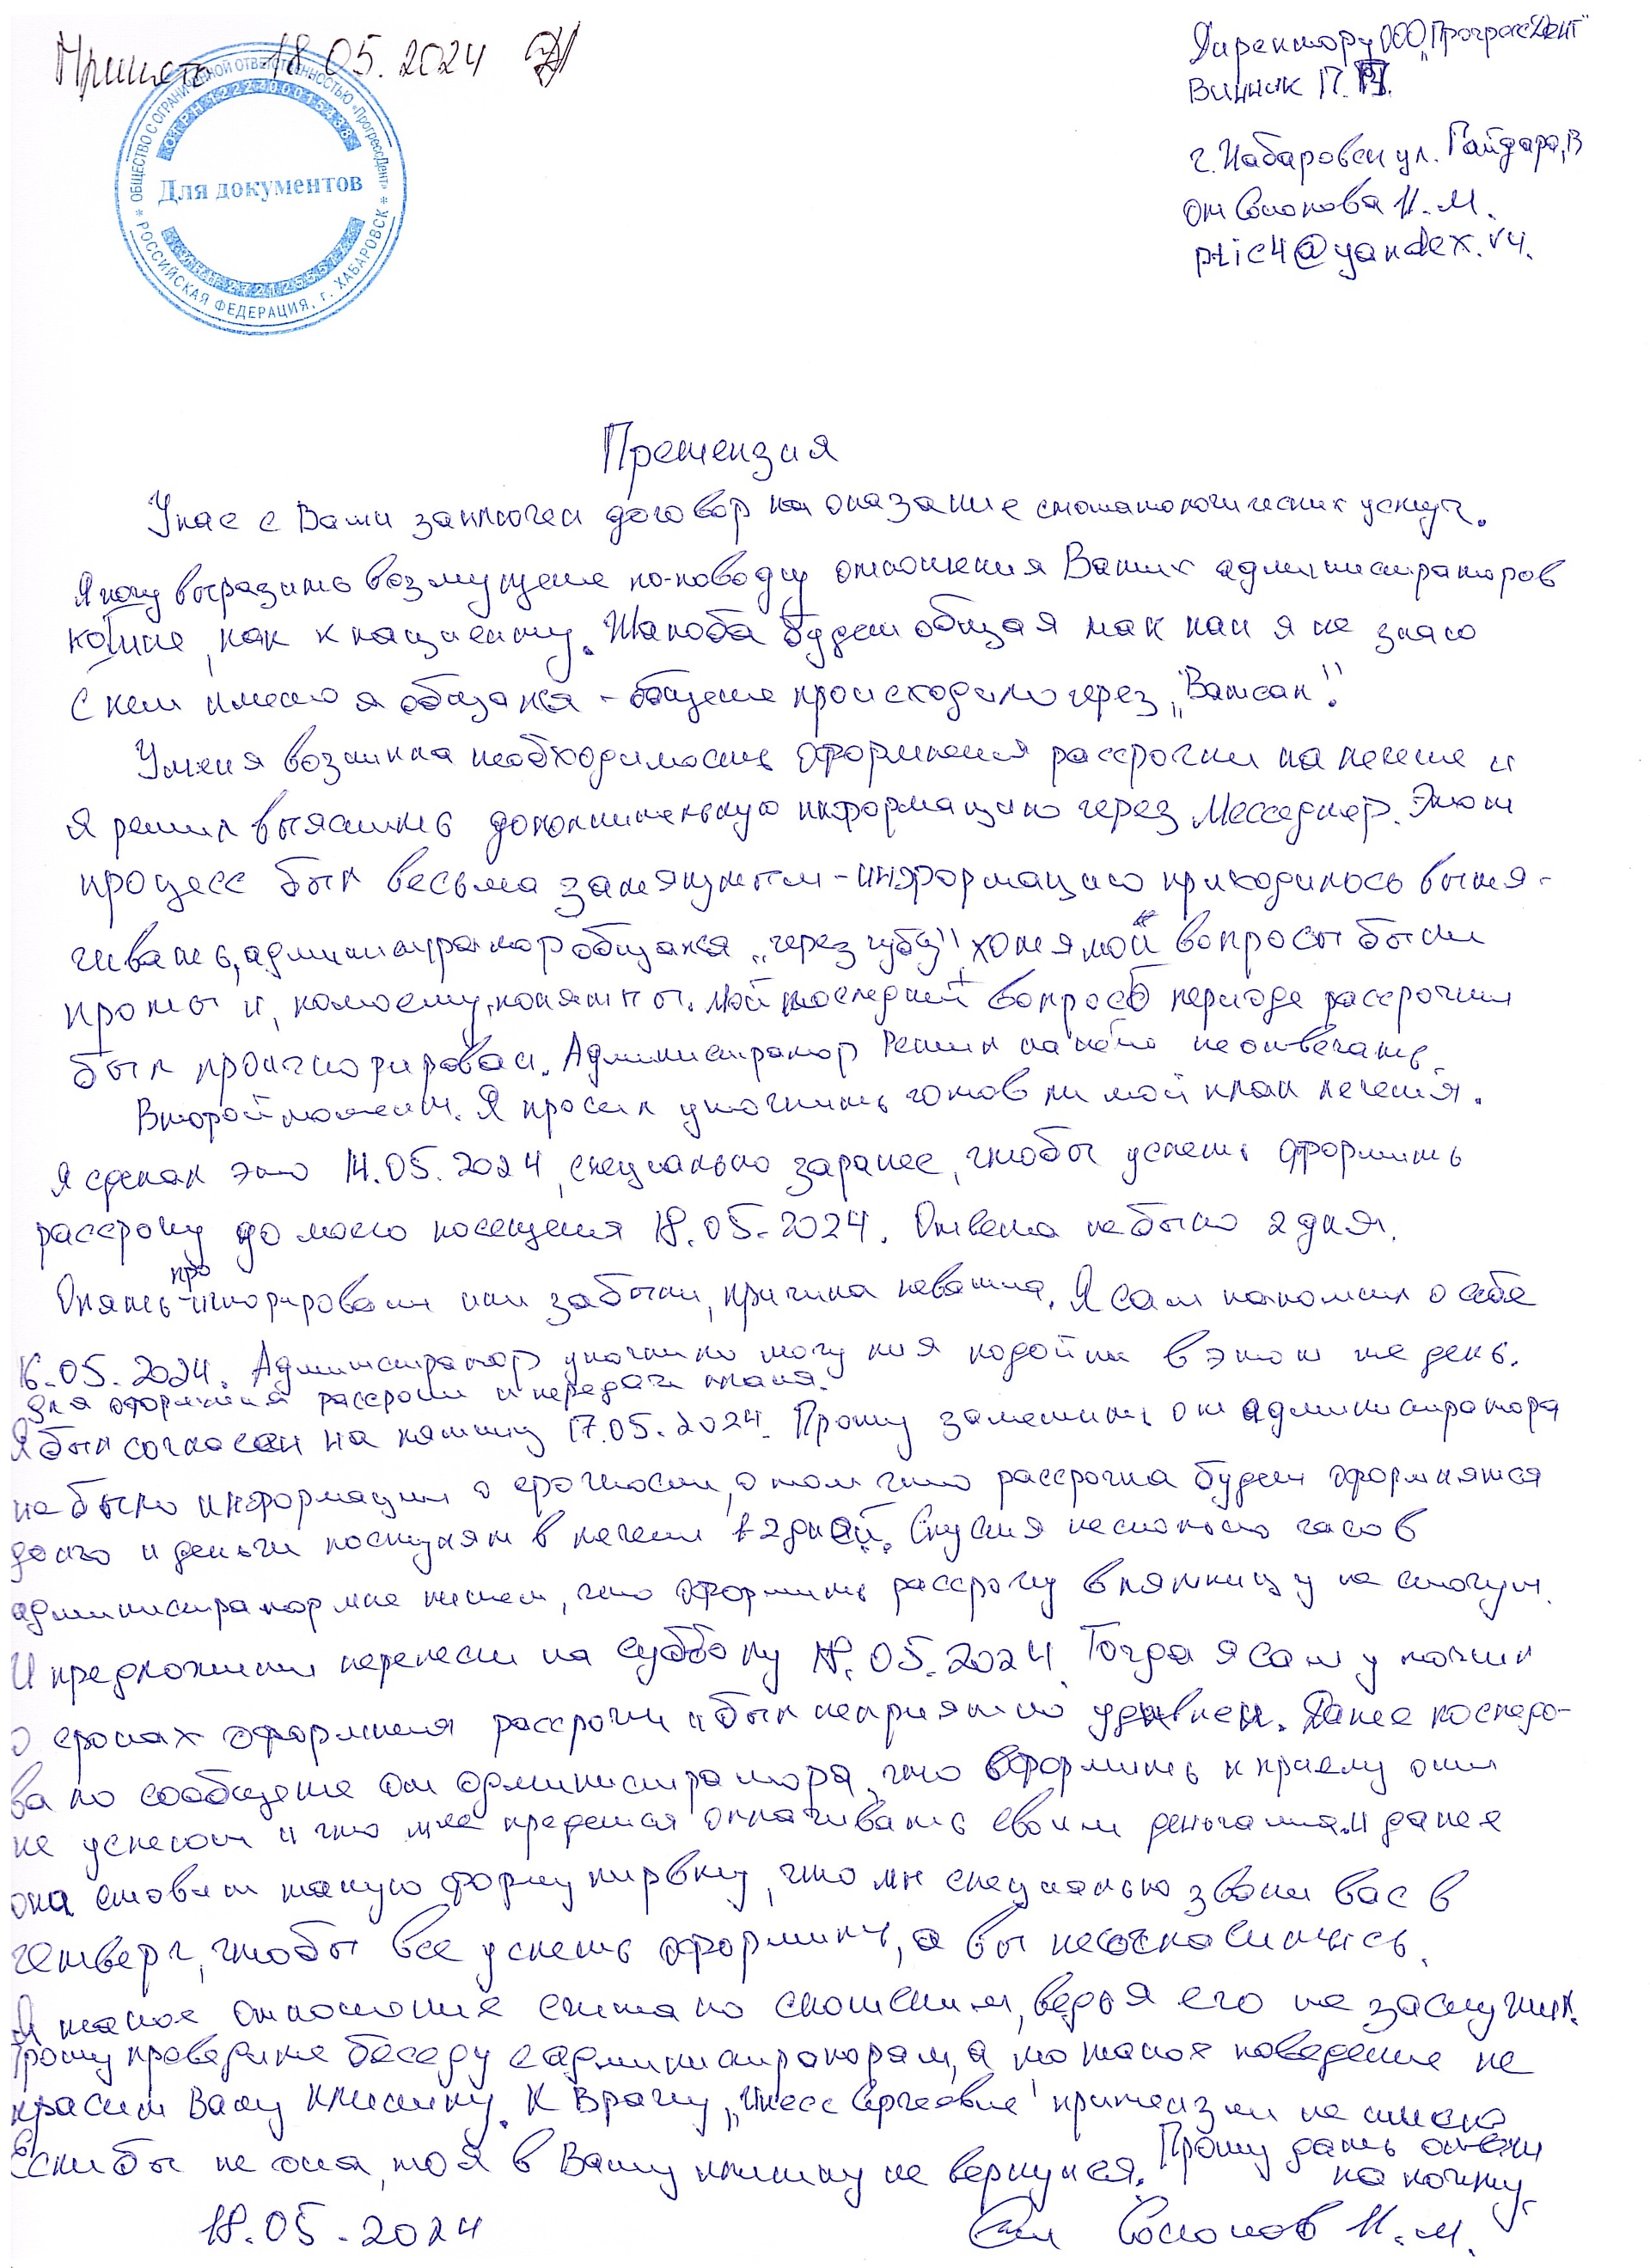 Принято 18.05.2024
ОБЩЕСТВО С ОГРАНИЧЕННОЙ ОТВЕТСТВЕННОСТЬЮ «ПрогрессДент»
ОГРН
Для документов
* РОССИЙСКАЯ ФЕДЕРАЦИЯ, г. ХАБАРОВСК *
Директору ООО „ПрогресДент"
Винник П.
г. Хабаровск ул. Гайдара,
от Соколова И.М.
ptic4@yandex.ru.
Претензия
У нас с Вами заключен договор на оказание стоматологических услуг.
Я хочу выразить возмущение по-поводу отношения Ваших администраторов
ко мне, как к пациенту. Жалоба будет общая так как я не знаю
с кем именно я общался - общение происходило через „Ватсап".
У меня возникла необходимость оформления рассрочки на лечение и
я решил выяснить дополнительную информацию через Месседжер. Этот
процесс был весьма затянутым - информацию приходилось вытя-
гивать, администратор общался „через губу", хотя мои вопросы были
просты и, помоему, понятны. Мой последний вопрос о периоде рассрочки
был проигнорирован. Администратор решил на него не отвечать.
Второй момент. Я просил уточнить готов ли мой план лечения.
Я сделал это 14.05.2024, специально заранее, чтобы успеть оформить
рассрочку до моего посещения 18.05.2024. Ответа не было 2 дня.
Опять проигнорировали или забыли, причина неважна. Я сам напомнил о себе
16.05.2024. Администратор уточнила могу ли я подойти в этот же день.
для оформления рассрочки и передачи плана.
Я был согласен на пятницу 17.05.2024. Прошу заметить от администратора
не было информации о срочности, о том что рассрочка будет оформлятся
долго и деньги поступят в течении 1-2 дней. Спустя несколько часов
администратор мне пишет, что оформить рассрочку в пятницу не смогут.
И предложили перенести на субботу 18.05.2024. Тогда я сам уточнил
о сроках оформления рассрочки и был неприятно удивлен. Далее последо-
вало сообщение от администратора, что оформить к приему они
не успеют и что мне придется оплачивать своими деньгами. И далее
она ставит такую формулировку, что мы специально звали вас в
четверг, чтобы все успеть оформить, а вы не согласились.
Я такое отношение считаю скотским, ведь я его не заслужил.
Прошу проведите беседу с администраторам, а то такое поведение не
красит Вашу клинику. К Врачу „Инесс Сергеевне" притензии не имею
Если бы не она, то я в Вашу клинику не вернулся. Прошу дать ответ
на почту
18.05.2024
Соколов И.М.